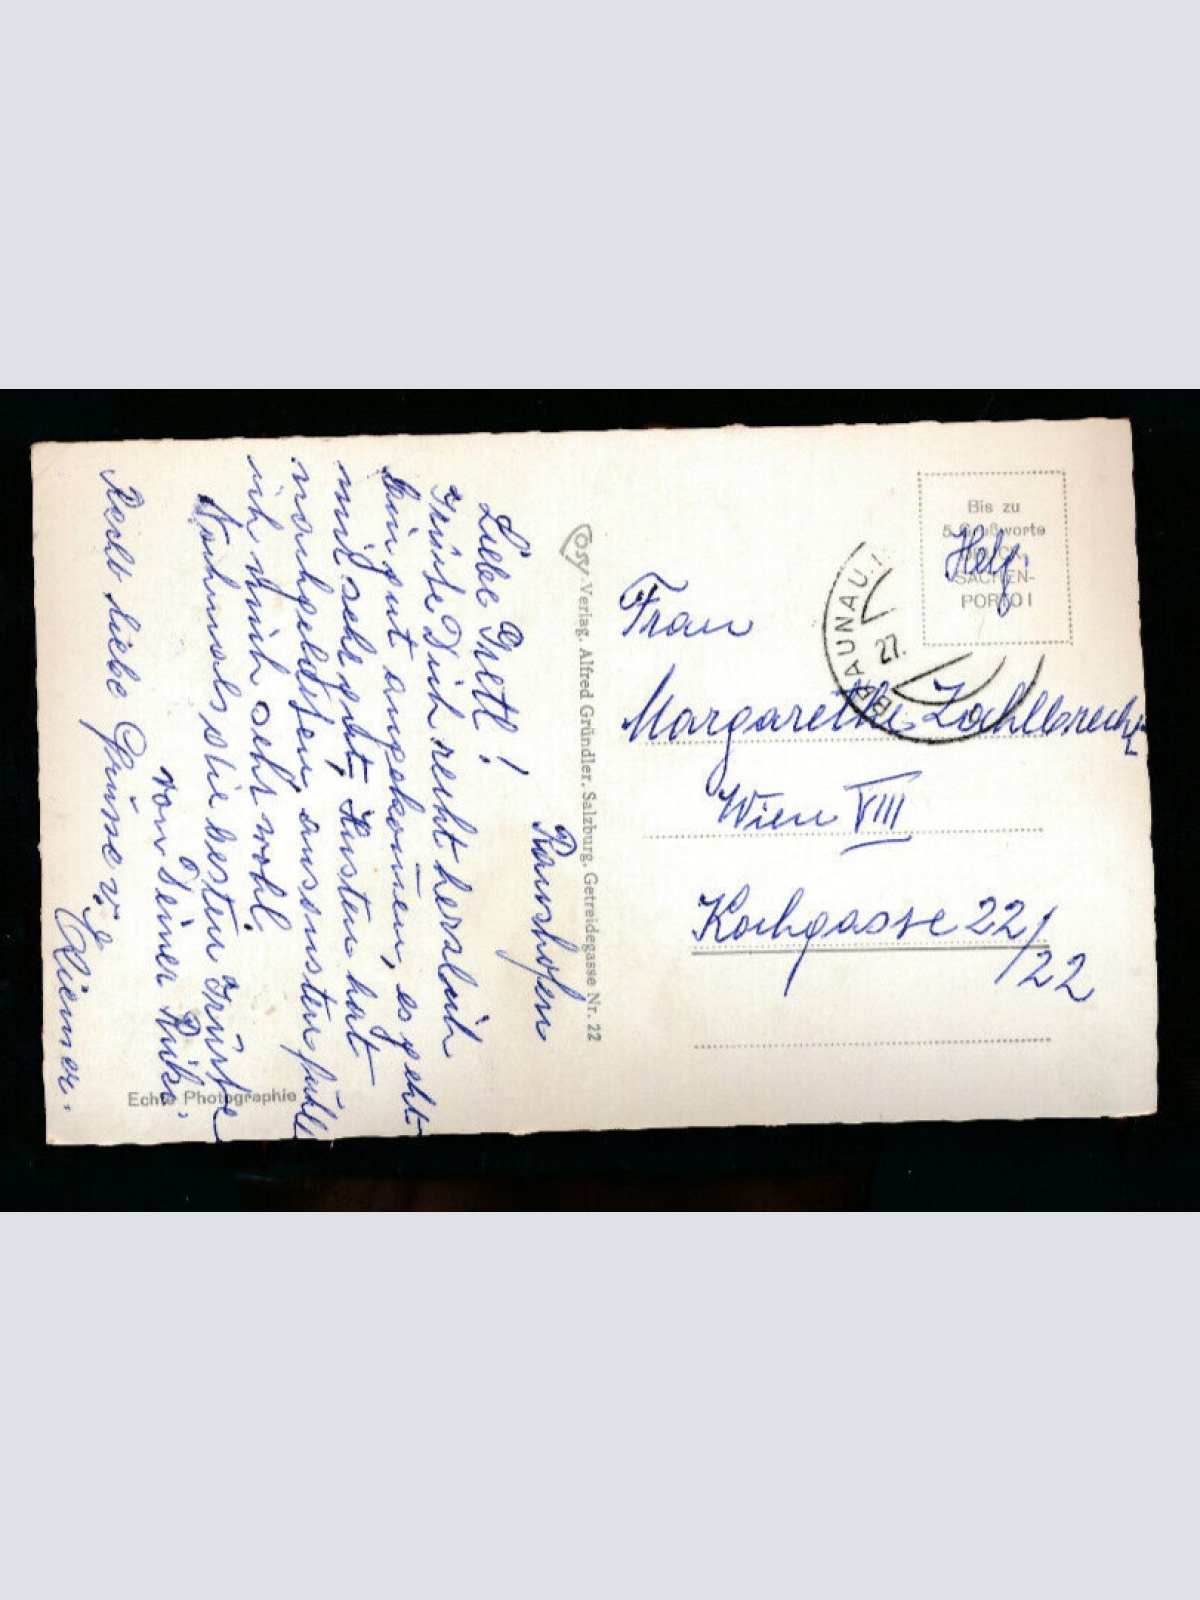 Ranshofen
Liebe Gretl!
Grüße Dich recht herzlich
bin gut angekommen, es geht
mir sehr gut, Husten hat
nachgelassen, ansonsten fühle
ich mich sehr wohl.
Nochmals die besten Grüße
von Deiner Rike.
Recht liebe Grüße v.
Cosy-Verlag, Alfred Gründler, Salzburg, Getreidegasse Nr. 22
Echte Photographie
Bis zu
5 Grußworte
DRUCK-
SACHEN-
PORTO!
BRAUNAU
27.
Frau
Margarethe
Wien VIII
Kochgasse 22/22